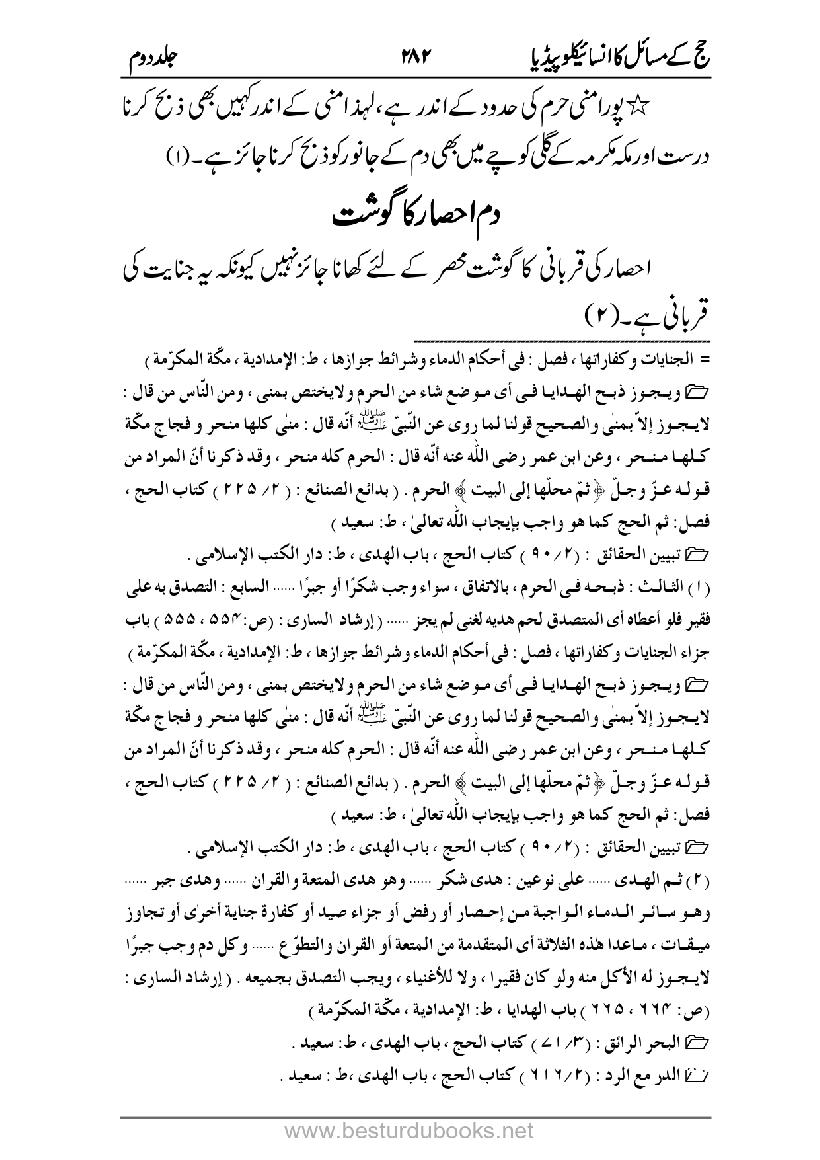 حج کے مسائل کا انسائیکلوپیڈیا ۲۸۲ جلد دوم
☆ پورا منی حرم کی حدود کے اندر ہے، لہذا منی کے اندر کہیں بھی ذبح کرنا
درست اور مکہ مکرمہ کے گلی کوچے میں بھی دم کے جانور کو ذبح کرنا جائز ہے۔(۱)
دم احصار کا گوشت
احصار کی قربانی کا گوشت محصر کے لئے کھانا جائز نہیں کیونکہ یہ جنایت کی
قربانی ہے۔(۲)
= الجنایات وکفاراتها ، فصل : فی أحکام الدماء وشرائط جوازها ، ط: الإمدادیة ، مکّة المکرّمة )
ویجوز ذبح الهدایا فی أی موضع شاء من الحرم ولایختص بمنی ، ومن النّاس من قال :
لایجوز إلاّ بمنٰی والصحیح قولنا لما روی عن النّبیّ ﷺ أنّه قال : منٰی کلها منحر و فجاج مکّة
کلها منحر ، وعن ابن عمر رضی اللّٰه عنه أنّه قال : الحرم کله منحر ، وقد ذکرنا أنّ المراد من
قوله عزّ وجلّ ﴿ ثمّ محلّها إلی البیت ﴾ الحرم . ( بدائع الصنائع : ( ۲/ ۲۲۵ ) کتاب الحج ،
فصل: ثم الحج کما هو واجب بإیجاب اللّٰه تعالیٰ ، ط: سعید )
تبیین الحقائق : (۲/ ۹۰ ) کتاب الحج ، باب الهدی ، ط: دار الکتب الإسلامی .
(۱) الثالث : ذبحه فی الحرم ، بالاتفاق ، سواء وجب شکرًا أو جبرًا ...... السابع : التصدق به علی
فقیر فلو أعطاه أی المتصدق لحم هدیه لغنی لم یجز ...... ( إرشاد الساری : (ص: ۵۵۴ ، ۵۵۵ ) باب
جزاء الجنایات وکفاراتها ، فصل : فی أحکام الدماء وشرائط جوازها ، ط: الإمدادیة ، مکّة المکرّمة )
ویجوز ذبح الهدایا فی أی موضع شاء من الحرم ولایختص بمنی ، ومن النّاس من قال :
لایجوز إلاّ بمنٰی والصحیح قولنا لما روی عن النّبیّ ﷺ أنّه قال : منٰی کلها منحر و فجاج مکّة
کلها منحر ، وعن ابن عمر رضی اللّٰه عنه أنّه قال : الحرم کله منحر ، وقد ذکرنا أنّ المراد من
قوله عزّ وجلّ ﴿ ثمّ محلّها إلی البیت ﴾ الحرم . ( بدائع الصنائع : ( ۲/ ۲۲۵ ) کتاب الحج ،
فصل: ثم الحج کما هو واجب بإیجاب اللّٰه تعالیٰ ، ط: سعید )
تبیین الحقائق : (۲/ ۹۰ ) کتاب الحج ، باب الهدی ، ط: دار الکتب الإسلامی .
(۲) ثم الهدی ...... علی نوعین : هدی شکر ...... وهو هدی المتعة والقران ...... وهدی جبر ......
وهو سائر الدماء الواجبة من إحصار أو رفض أو جزاء صید أو کفارة جنایة أخرٰی أو تجاوز
میقات ، ماعدا هذه الثلاثة أی المتقدمة من المتعة أو القران والتطوّع ...... وکل دم وجب جبرًا
لایجوز له الأکل منه ولو کان فقیرا ، ولا للأغنیاء ، ویجب التصدق بجمیعه . ( إرشاد الساری :
(ص: ۶۶۴ ، ۶۶۵ ) باب الهدایا ، ط: الإمدادیة ، مکّة المکرّمة )
البحر الرائق : (۳/ ۷۱ ) کتاب الحج ، باب الهدی ، ط: سعید .
الدر مع الرد : (۲/ ۶۱۶ ) کتاب الحج ، باب الهدی ،ط : سعید .
www.besturdubooks.net